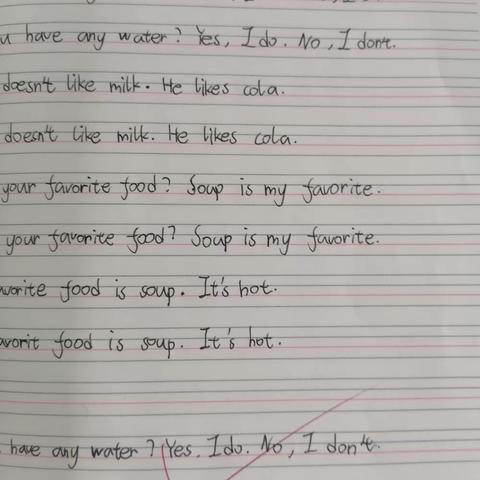 have any water? Yes, I do. No, I don't.
doesn't like milk. He likes cola.
doesn't like milk. He likes cola.
your favorite food? Soup is my favorite.
your favorite food? Soup is my favorite.
vorite food is soup. It's hot.
vorit food is soup. It's hot.
have any water? Yes. I do. No, I don't.